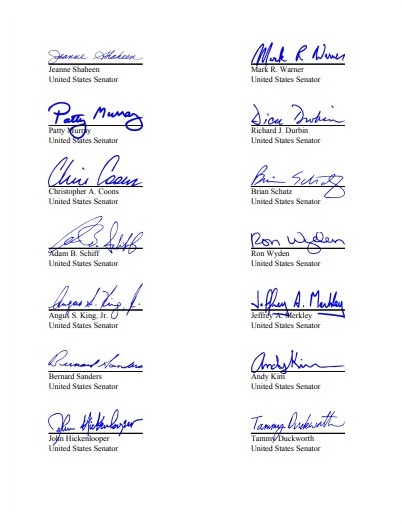 Jeanne Shaheen
Jeanne Shaheen
United States Senator
Mark R Warner
Mark R. Warner
United States Senator
Patty Murray
Patty Murray
United States Senator
Dick Durbin
Richard J. Durbin
United States Senator
Chris Coons
Christopher A. Coons
United States Senator
Brian Schatz
Brian Schatz
United States Senator
Adam B. Schiff
United States Senator
Ron Wyden
Ron Wyden
United States Senator
Angus S. King, Jr.
Angus S. King, Jr.
United States Senator
Jeffrey A. Merkley
Jeffrey A. Merkley
United States Senator
Bernard Sanders
Bernard Sanders
United States Senator
Andy Kim
Andy Kim
United States Senator
John Hickenlooper
John Hickenlooper
United States Senator
Tammy Duckworth
Tammy Duckworth
United States Senator